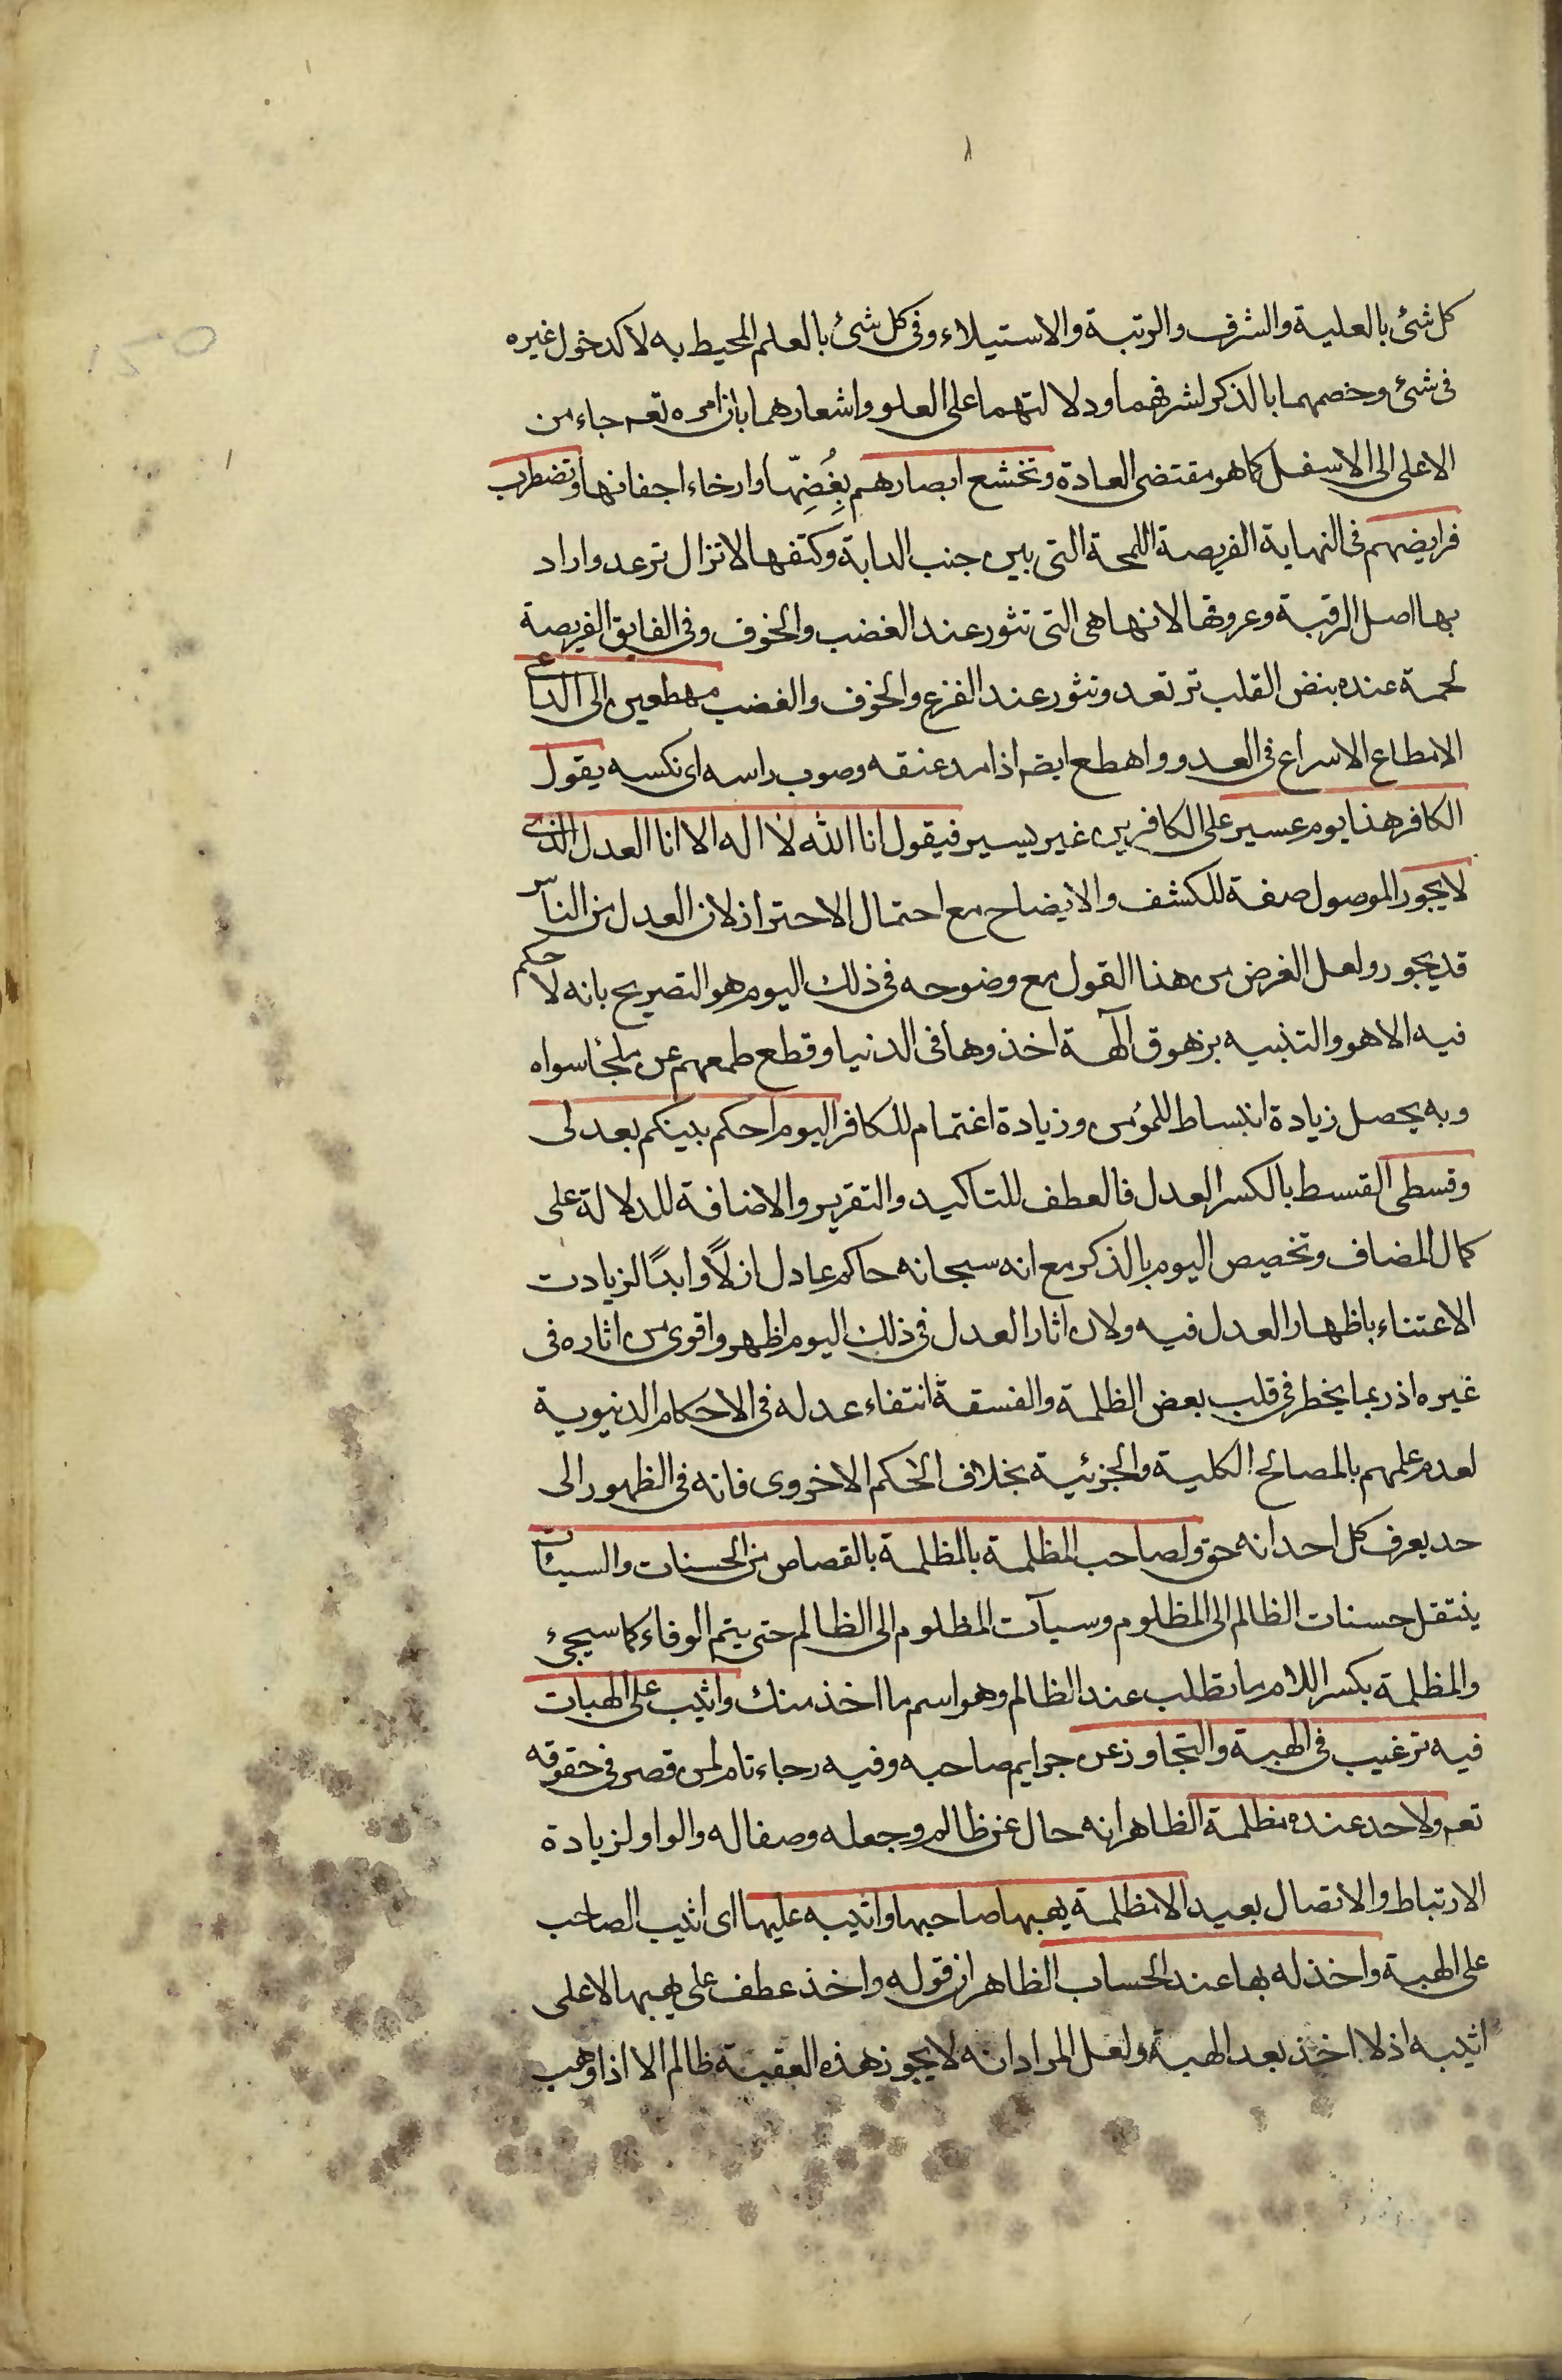 كل شئ بالعلية والشرف والرتبة والاستيلاء وفى كل شئ بالعلم المحيط به لا كدخول غيره
فى شئ وخصهما بالذكر لشرفهما ودلالتهما على العلو واشعارهما بان امره تعه جاء من
الاعلى الى الاسفل كما هو مقتضى العادة وتخشع ابصارهم بِغُضِّها وارخاء اجفانها وتضطرب
فرايضهم فى النهاية الفريصة اللحمة التى بين جنب الدابة وكتفها لا تزال ترعد واراد
بها اصل الرقبة وعروقها لانها هى التى تثور عند الغضب والخوف وفى الفايق الفريصة
لحمة عنده بنض القلب ترتعد وتثور عند الفزع والخوف والغضب مهطعين الى الداعى
الاهطاع الاسراع فى العدو واهطع ايضه اذا مد عنقه وصوب راسه اى نكسه يقول
الكافر هذا يوم عسير على الكافرين غير يسير فيقول انا الله لا اله الا انا العدل الذى
لا يجور الموصول صفة للكشف والايضاح مع احتمال الاحتراز لان العدل من الناس
قد يجور ولعل الغرض من هذا القول مع وضوحه فى ذلك اليوم هو التصريح بانه لا حكم
فيه الا هو والتنبيه بزهوق آلهة اخذوها فى الدنيا وقطع طمعهم عن ملجئا سواه
وبه يحصل زيادة انبساط للمؤمن وزيادة اغتمام للكافر اليوم احكم بينكم بعدلى
وقسطى القسط بالكسر العدل فالعطف للتاكيد والتقرير والاضافة للدلالة على
كمال المضاف وتخصيص اليوم بالذكر مع انه سبحانه حاكم عادل ازلاً وابداً لزيادت
الاعتناء باظهار العدل فيه ولان اثار العدل فى ذلك اليوم اظهر واقوى من اثاره فى
غيره اذ ربما يخطر فى قلب بعض الظلمة والفسقة انتفاء عدله فى الاحكام الدنيوية
لعدم علمهم بالمصالح الكلية والجزئية بخلاف الحكم الاخروى فانه فى الظهور الى
حد يعرف كل احد انه حق ولصاحب المظلمة بالمظلمة بالقصاص من الحسنات والسيئات
ينتقل حسنات الظالم الى المظلوم وسيآت المظلوم الى الظالم حتى يتم الوفاء كما سيجىء
والمظلمة بكسر اللام ما تطلب عند الظالم وهو اسم ما اخذ منك واثيب على الهبات
فيه ترغيب فى الهبة والتجاوز عن جرايم صاحبه وفيه رجاء تام لمن قصر فى حقوقه
تعه ولاحد عنده مظلمة الظاهر انه حال عن ظالم وجعله وصفا له والواو لزيادة
الارتباط والاتصال بعيد الا مظلمة يهبها صاحبها واثيبه عليها اى اثيب الصاحب
على الهبة واخذ له بها عند الحساب الظاهر ان قوله واخذ عطف على يهبها لا على
اثيبه اذ لا اخذ بعد الهبة ولعل المراد انه لا يجوز هذه العقبة ظالم الا اذا وهب